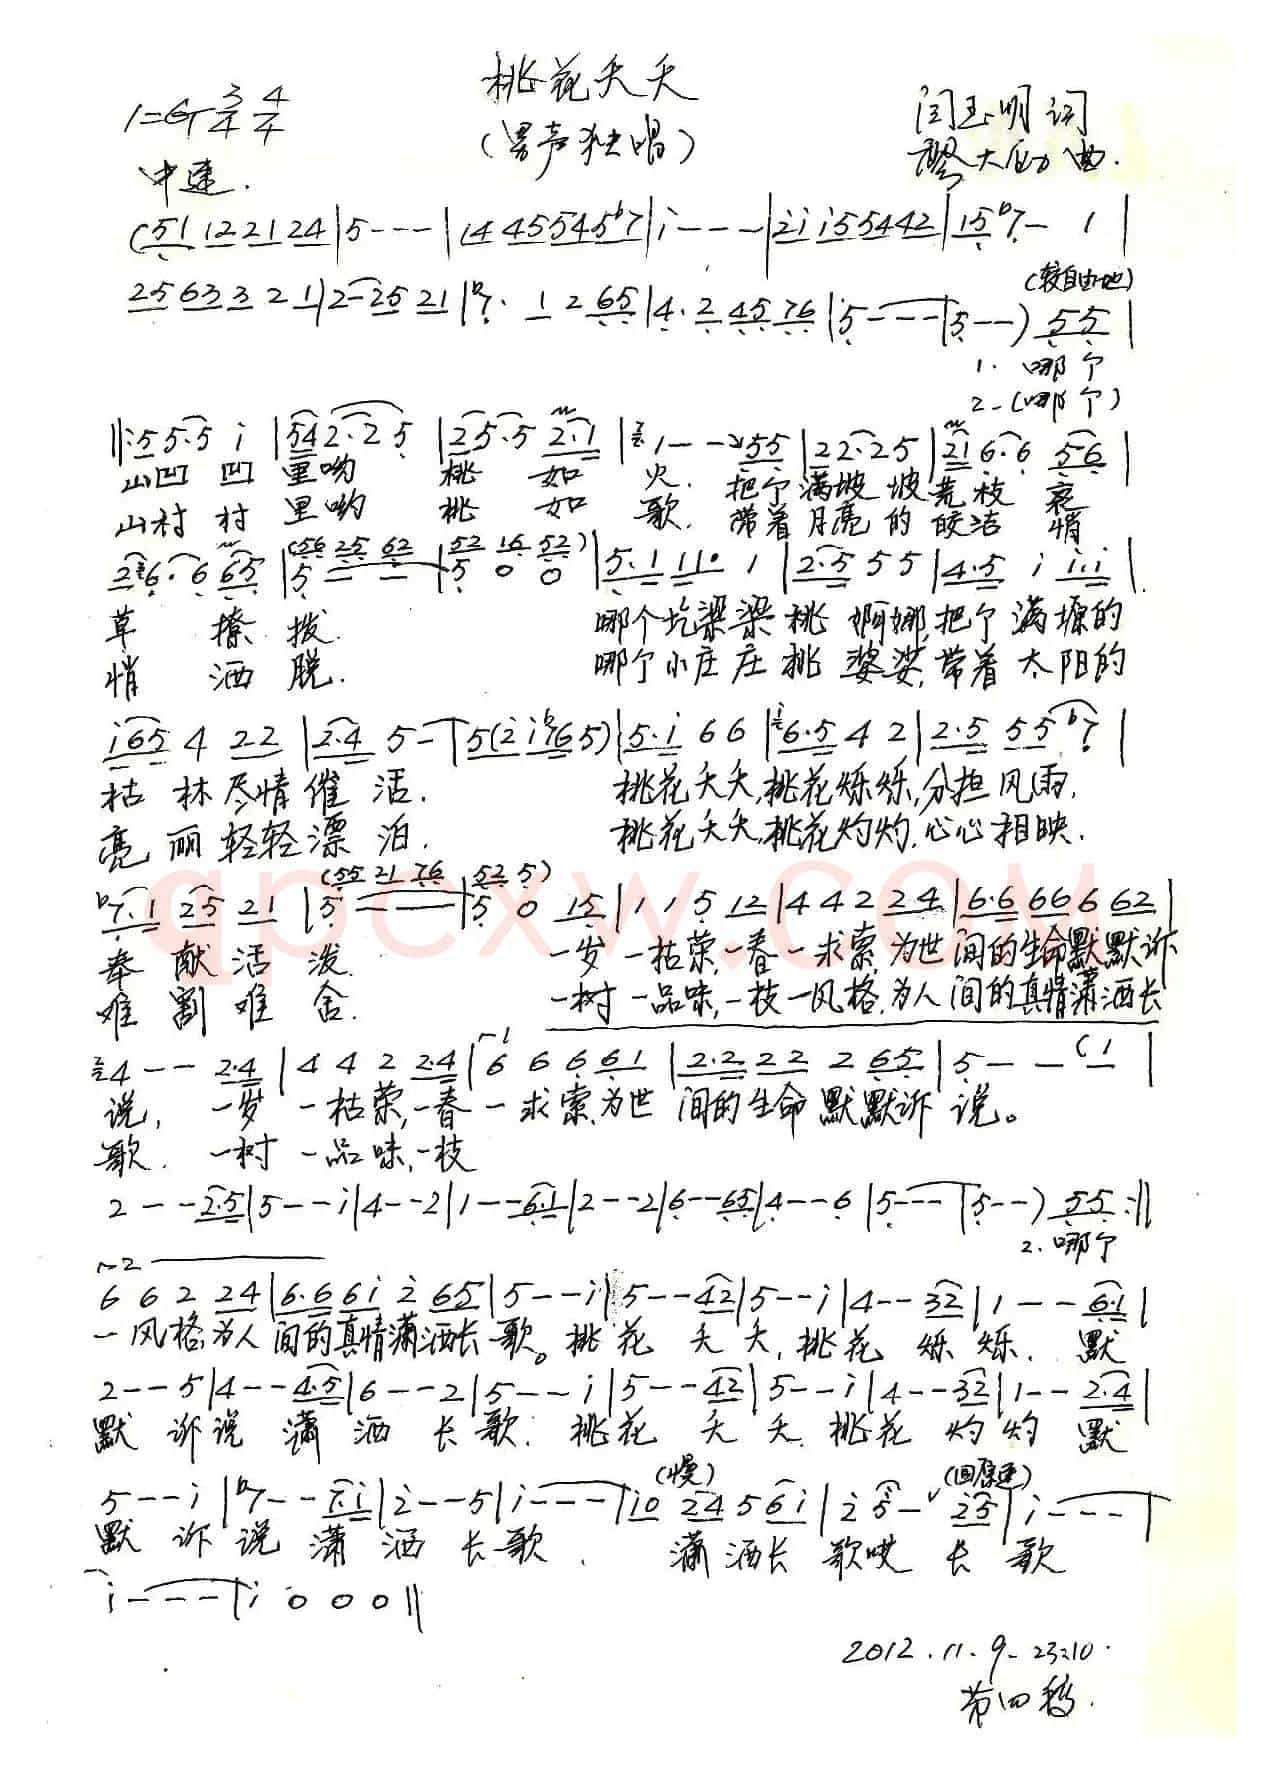 桃花夭夭
1=G 3/4 4/4
(男声独唱)
闫玉明 词
大 曲.
中速.
(51 12 21 24|5---|14 45 54 5b7|i---|2i i5 54 42|15 b7- 1|
25 63 3 2 1|2-25 21|b7. 1 2 65|4.2 45 76|5---|5--) 55|
(较自由地)
1. 哪个
2-(哪个)
||:5 55.5 i |54 2.2 5 |25.5 2.1|1--55|22.25|21 6.6 56|
山凹 凹 里哟 桃 如 火. 把个满坡坡荒枝 哀
山村 村 里哟 桃 如 歌. 带着月亮的皎洁 悄
(56 25 62|52 16 52)
26.6 65|5---|5 0 0|5.1 11. 1|2.5 5 5|4.5 i i.i|
草 撩 拨. 哪个圪梁梁桃 婀娜,把个满塬的
悄 洒 脱. 哪个小庄庄桃 婆娑,带着太阳的
i65 4 22|2.4 5-|5(2i b765)|5.i 66|6.5 4 2|2.5 55 b7|
枯 林尽情催 活. 桃花夭夭,桃花烁烁,分担风雨.
亮 丽轻轻漂 泊. 桃花夭夭,桃花灼灼,心心相映.
(55 21 76|52 5)
b7.1 25 21|5---|5 0 15|1 1 5 12|4 4 2 24|6.6 66 6 62|
奉 献 活 泼. 一岁一枯荣,一春一求索,为世间的生命默默诉
难 割 难 舍. 一树一品味,一枝一风格,为人间的真情潇洒长
4-- 2.4|4 4 2 2.4|6 6 6 61|2.2 22 2 65|5-- (1|
说, 一岁一枯荣,一春一求索,为世间的生命默默诉说。
歌. 一树一品味,一枝
2--2.5|5--i|4--2|1--6.1|2--2|6--65|4--6|5---|5--) 55:||
2. 哪个
6 6 2 24|6.6 6i 2 65|5--i|5--42|5--i|4--32|1--6.1|
一风格,为人间的真情潇洒长歌。桃花夭夭,桃花烁烁. 默
2--5|4--4.5|6--2|5--i|5--42|5--i|4--32|1--2.4|
默诉说潇洒长歌. 桃花夭夭.桃花灼灼默
(慢) (回原速)
5--i|b7--7.i|2--5|i---|i0 24 5 6i|2 5-25|i---|
默诉说潇洒长歌. 潇洒长歌哎长歌
i---|i 0 0 0||
2012.11.9-23:10.
第四稿.
qpcxw.com